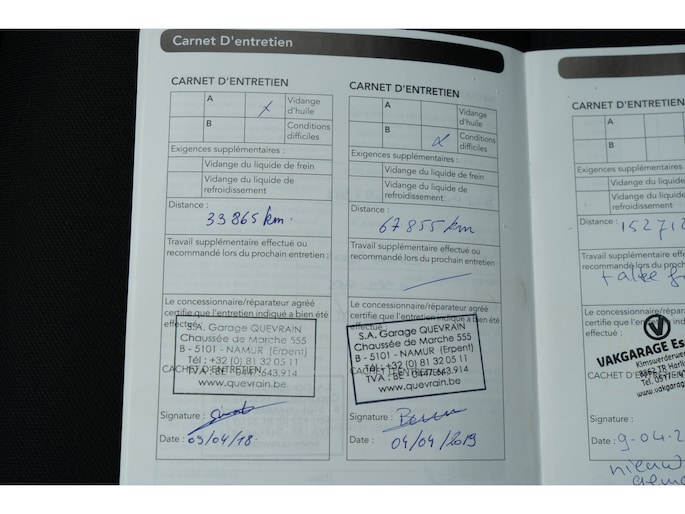 Carnet D'entretien
CARNET D'ENTRETIEN
A
x
Vidange d'huile
B
Conditions difficiles
Exigences supplémentaires :
Vidange du liquide de frein
Vidange du liquide de refroidissement
Distance :
33 865 km.
Travail supplémentaire effectué ou
recommandé lors du prochain entretien :
Le concessionnaire/réparateur agréé
certifie que l'entretien indiqué a bien été
effectué :
S.A. Garage QUEVRAIN
Chaussée de Marche 555
B - 5101 - NAMUR (Erpent)
Tél : +32 (0) 81 32 05 11
CACHET D'ENTRETIEN
TVA : BE 0447.643.914
www.quevrain.be
Signature :
Date : 03/04/18.
CARNET D'ENTRETIEN
A
Vidange d'huile
B
x
Conditions difficiles
Exigences supplémentaires :
Vidange du liquide de frein
Vidange du liquide de
refroidissement
Distance :
67 855 km
Travail supplémentaire effectué ou
recommandé lors du prochain entretien :
Le concessionnaire/réparateur agréé
certifie que l'entretien indiqué a bien été
effectué :
S.A. Garage QUEVRAIN
Chaussée de Marche 555
B - 5101 - NAMUR (Erpent)
Tél : +32 (0) 81 32 05 11
CACHET D'ENTRETIEN
TVA : BE 0447.643.914
www.quevrain.be
Signature :
Date : 04/04/2019
CARNET D'ENTRETIEN
A
B
Exigences supplémentaires
Vidange du liquide
Vidange du liquide
refroidissement
Distance :
152712
Travail supplémentaire effec
recommandé lors du proch
Le concessionnaire/répara
certifie que l'entretien ind
effectué :
VAKGARAGE Es
Kimswerderwe
CACHET D'ENTRE
8862 TR Harli
Tel. 0517
www.vakgarag
Signature :
Date : 9-04-2
nieuw